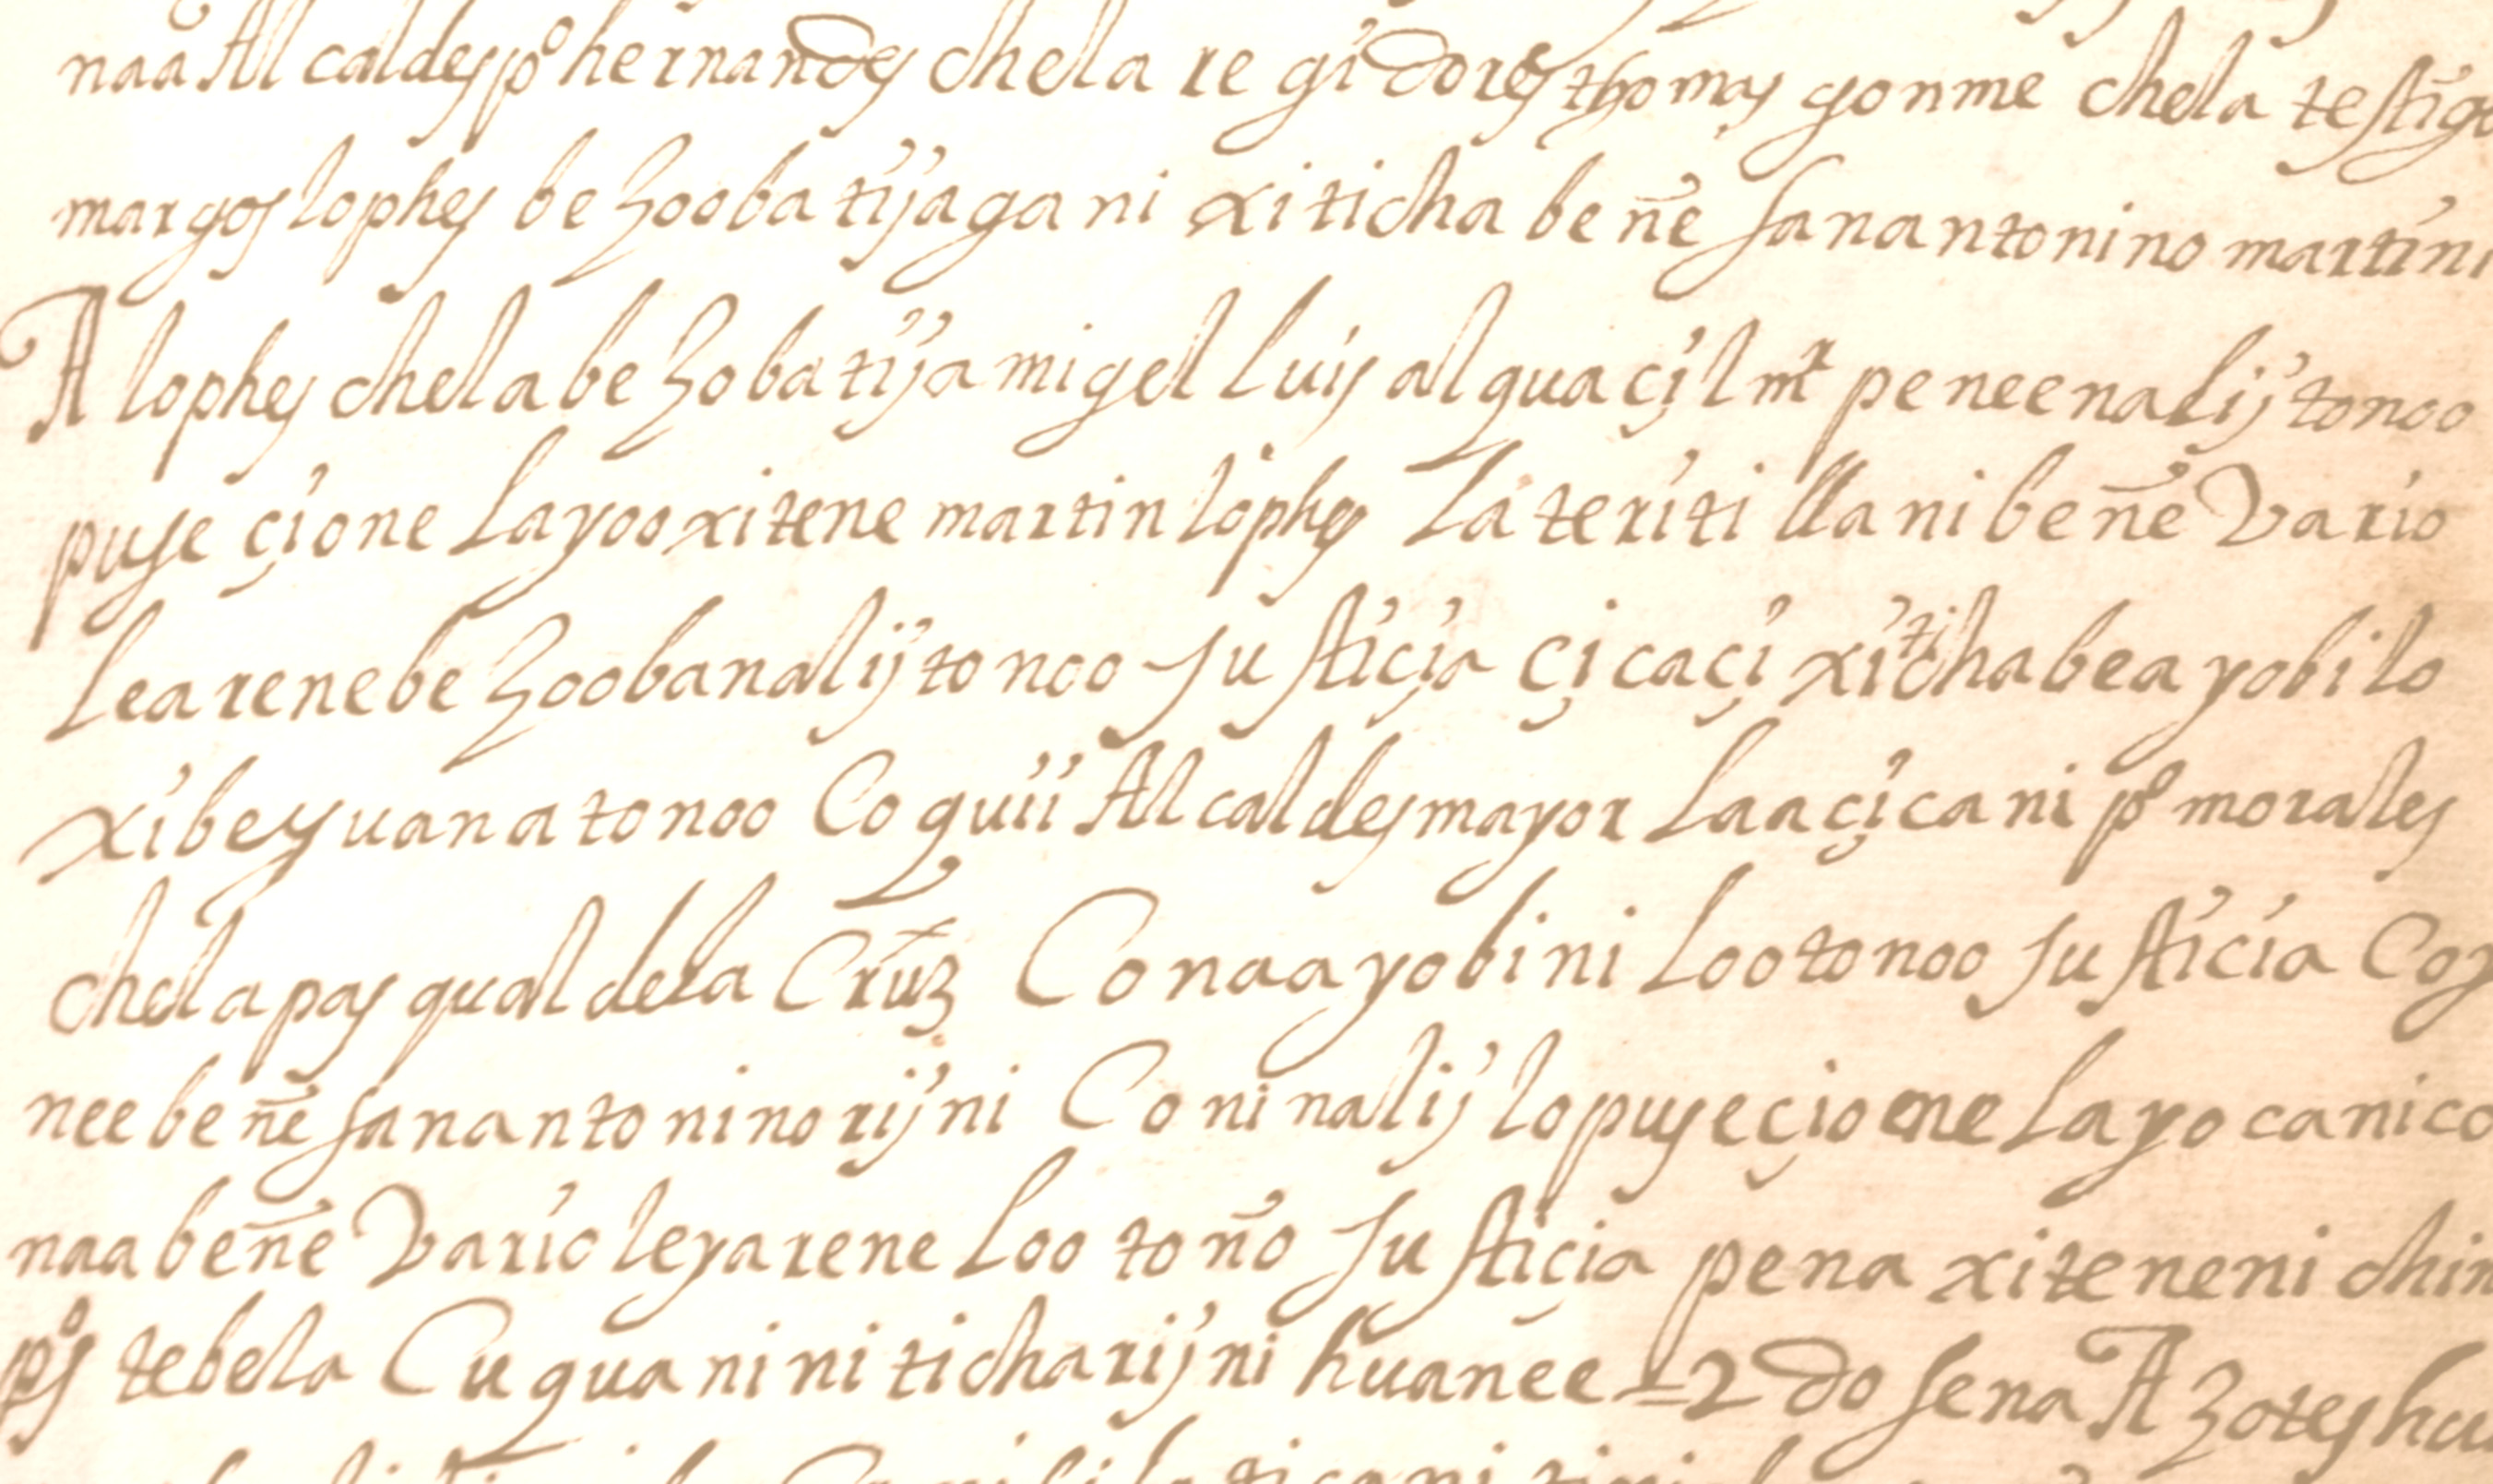 naa Alcaldes po hernandes chela re gidores thomas gonme chela testigo
margos lophes be zooba tija ga ni xi ticha be ñe san antonino martin
A lophes chela be zo ba tija migel luis alguaçil mr pe nee na lij tonoo
puse çione layoo xitene martin lophes la teriti lla ni be ñe Vario
lea rene be zooba na lij to noo justiçia çi caçi xitichabea yobi lo
xibeyuana tonoo Coquii Alcaldes mayor laa çica ni po morales
chela pasqual dela Cruz Conaa yobi ni loo tonoo justicia Coy
nee be ñe san antonino rij ni Coni na lij lo puseçioene layo canico
naa be ñe Vario leya rene loo toño justiçia pena xiteneni chin
pos tebela Cuquani ni ticha rij ni huanee 12 do sena Azotes hu